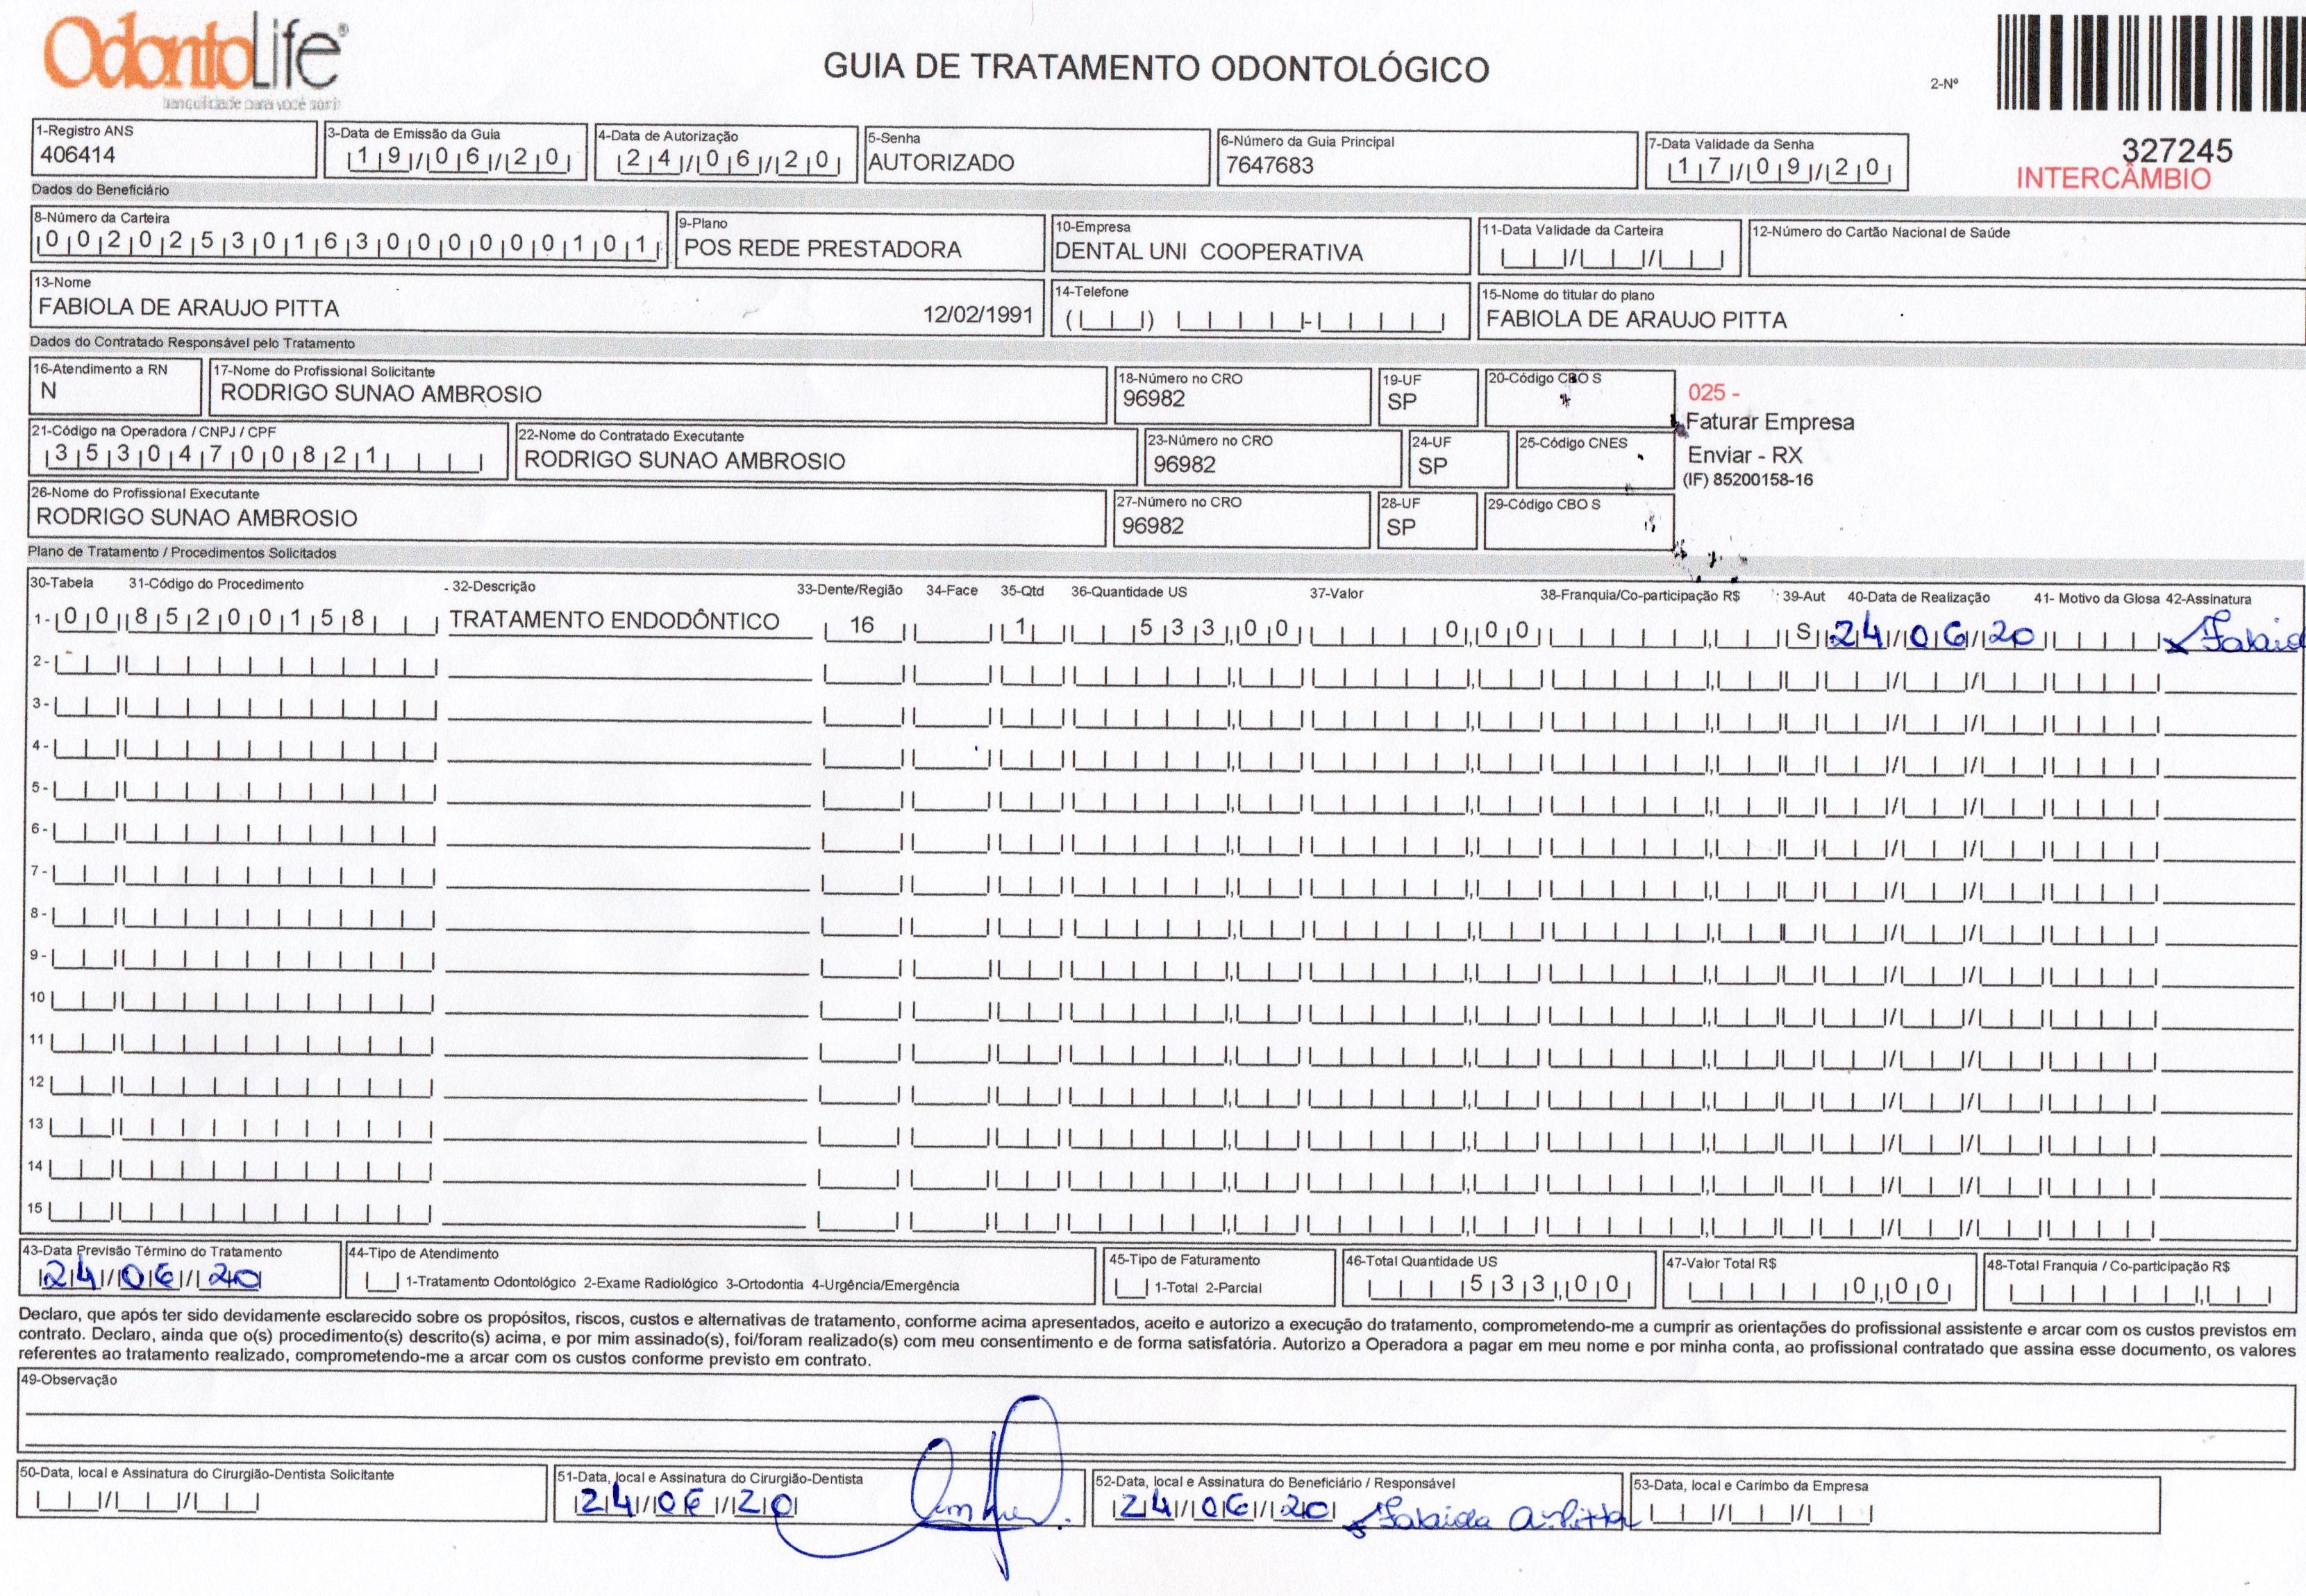 OdontoLife®
tranquilidade para você sorrir
GUIA DE TRATAMENTO ODONTOLÓGICO
2-Nº
327245
INTERCÂMBIO
1-Registro ANS
406414
3-Data de Emissão da Guia
19/06/20
4-Data de Autorização
24/06/20
5-Senha
AUTORIZADO
6-Número da Guia Principal
7647683
7-Data Validade da Senha
17/09/20
Dados do Beneficiário
8-Número da Carteira
00202530163000000101
9-Plano
POS REDE PRESTADORA
10-Empresa
DENTAL UNI COOPERATIVA
11-Data Validade da Carteira
12-Número do Cartão Nacional de Saúde
13-Nome
FABIOLA DE ARAUJO PITTA 12/02/1991
14-Telefone
15-Nome do titular do plano
FABIOLA DE ARAUJO PITTA
Dados do Contratado Responsável pelo Tratamento
16-Atendimento a RN
N
17-Nome do Profissional Solicitante
RODRIGO SUNAO AMBROSIO
18-Número no CRO
96982
19-UF
SP
20-Código CBO S
025 -
Faturar Empresa
Enviar - RX
(IF) 85200158-16
21-Código na Operadora / CNPJ / CPF
35304700821
22-Nome do Contratado Executante
RODRIGO SUNAO AMBROSIO
23-Número no CRO
96982
24-UF
SP
25-Código CNES
26-Nome do Profissional Executante
RODRIGO SUNAO AMBROSIO
27-Número no CRO
96982
28-UF
SP
29-Código CBO S
Plano de Tratamento / Procedimentos Solicitados
30-Tabela 31-Código do Procedimento 32-Descrição 33-Dente/Região 34-Face 35-Qtd 36-Quantidade US 37-Valor 38-Franquia/Co-participação R$ 39-Aut 40-Data de Realização 41- Motivo da Glosa 42-Assinatura
1- 00 85200158 TRATAMENTO ENDODÔNTICO 16 1 533,00 0,00 S 24/06/20
2-
3-
4-
5-
6-
7-
8-
9-
10
11
12
13
14
15
43-Data Previsão Término do Tratamento
24/06/20
44-Tipo de Atendimento
1-Tratamento Odontológico 2-Exame Radiológico 3-Ortodontia 4-Urgência/Emergência
45-Tipo de Faturamento
1-Total 2-Parcial
46-Total Quantidade US
533,00
47-Valor Total R$
0,00
48-Total Franquia / Co-participação R$
Declaro, que após ter sido devidamente esclarecido sobre os propósitos, riscos, custos e alternativas de tratamento, conforme acima apresentados, aceito e autorizo a execução do tratamento, comprometendo-me a cumprir as orientações do profissional assistente e arcar com os custos previstos em
contrato. Declaro, ainda que o(s) procedimento(s) descrito(s) acima, e por mim assinado(s), foi/foram realizado(s) com meu consentimento e de forma satisfatória. Autorizo a Operadora a pagar em meu nome e por minha conta, ao profissional contratado que assina esse documento, os valores
referentes ao tratamento realizado, comprometendo-me a arcar com os custos conforme previsto em contrato.
49-Observação
50-Data, local e Assinatura do Cirurgião-Dentista Solicitante
51-Data, local e Assinatura do Cirurgião-Dentista
24/06/20
52-Data, local e Assinatura do Beneficiário / Responsável
24/06/20
53-Data, local e Carimbo da Empresa